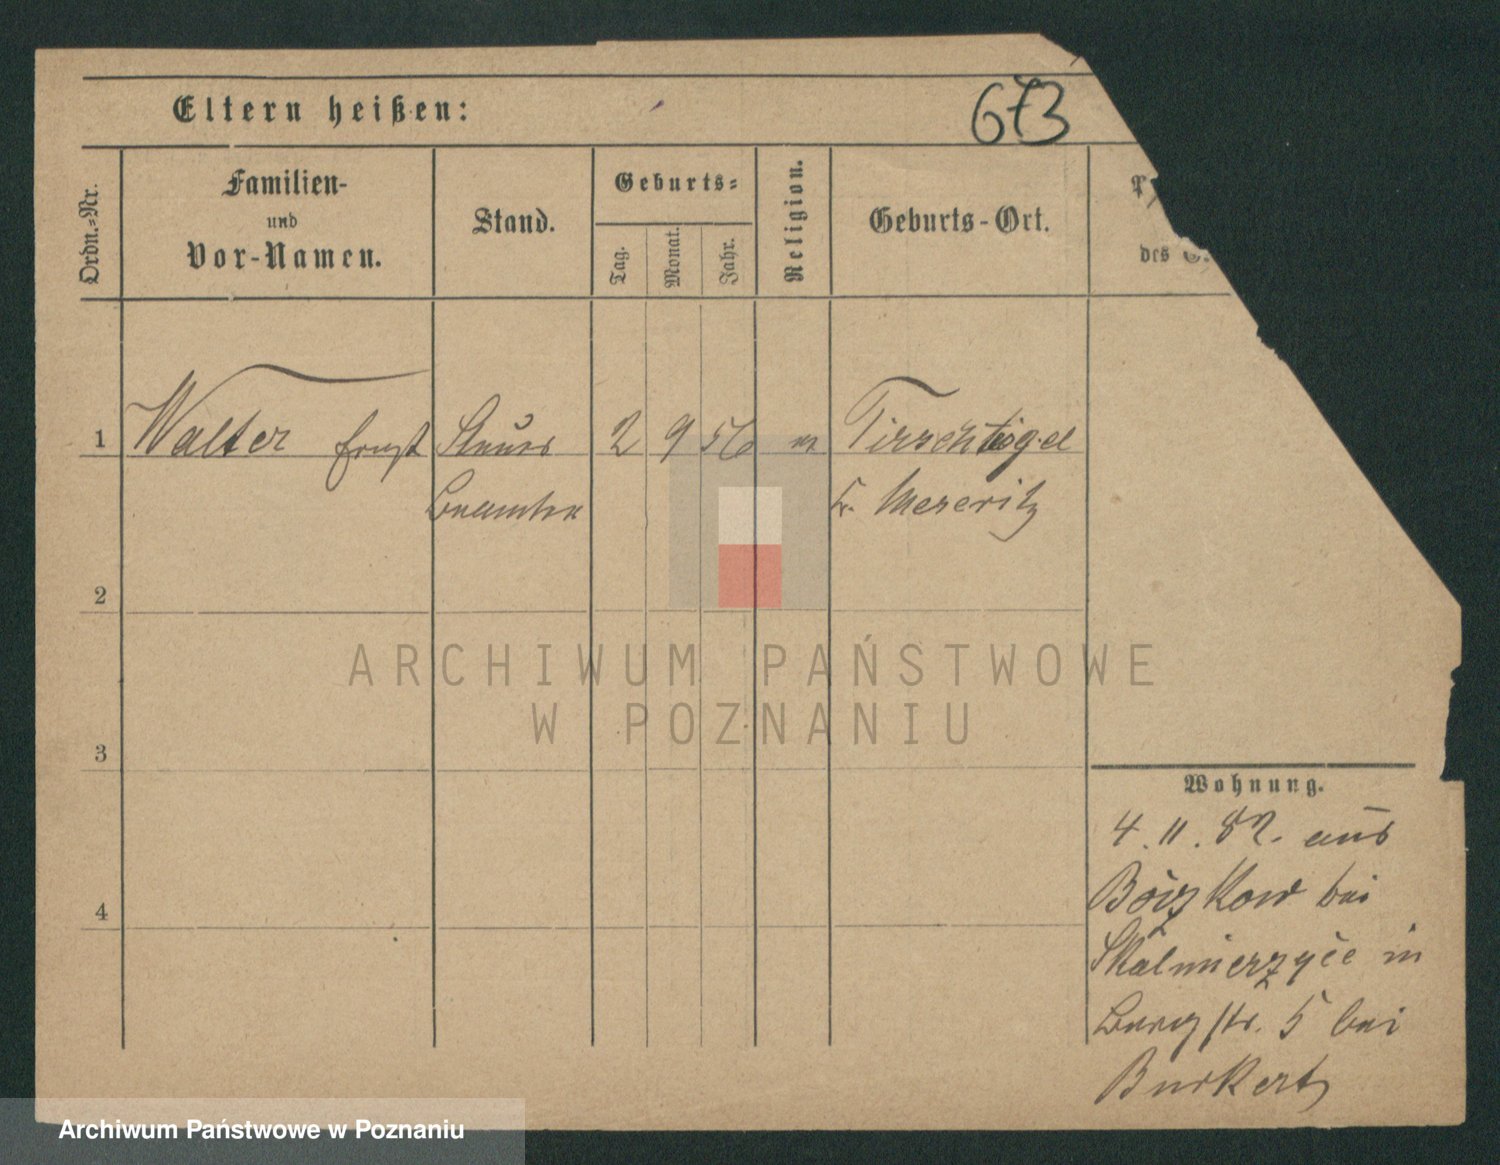 Eltern heißen:
673
Ordn.-Nr.
Familien-
und
Vor-Namen.
Stand.
Geburts-
Tag.
Monat.
Jahr.
Religion.
Geburts-Ort.
des
1 Walter Ernst Steuer 2 9 56 Tirschtiegel
Beamter Kr. Meseritz
2
3
4
Wohnung.
4. 11. 82. aus
bei
Skalmierzyce in
5 bei
Burkert
ARCHIWUM PAŃSTWOWE
W POZNANIU
Archiwum Państwowe w Poznaniu